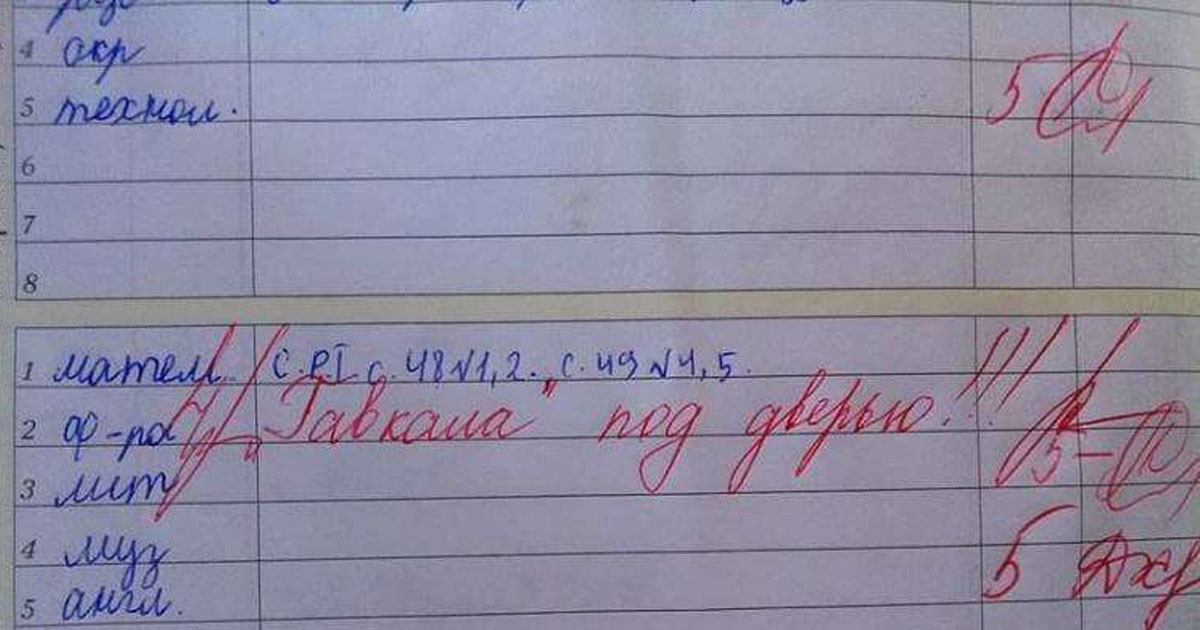 4 окр
5 технол. 5
6
7
8
1 матем. С. РI с. 48 №1,2. с. 49 №4,5.
2 ф-ра "Гавкала" под дверью!!!
3 лит 5-
4 муз
5 англ. 5